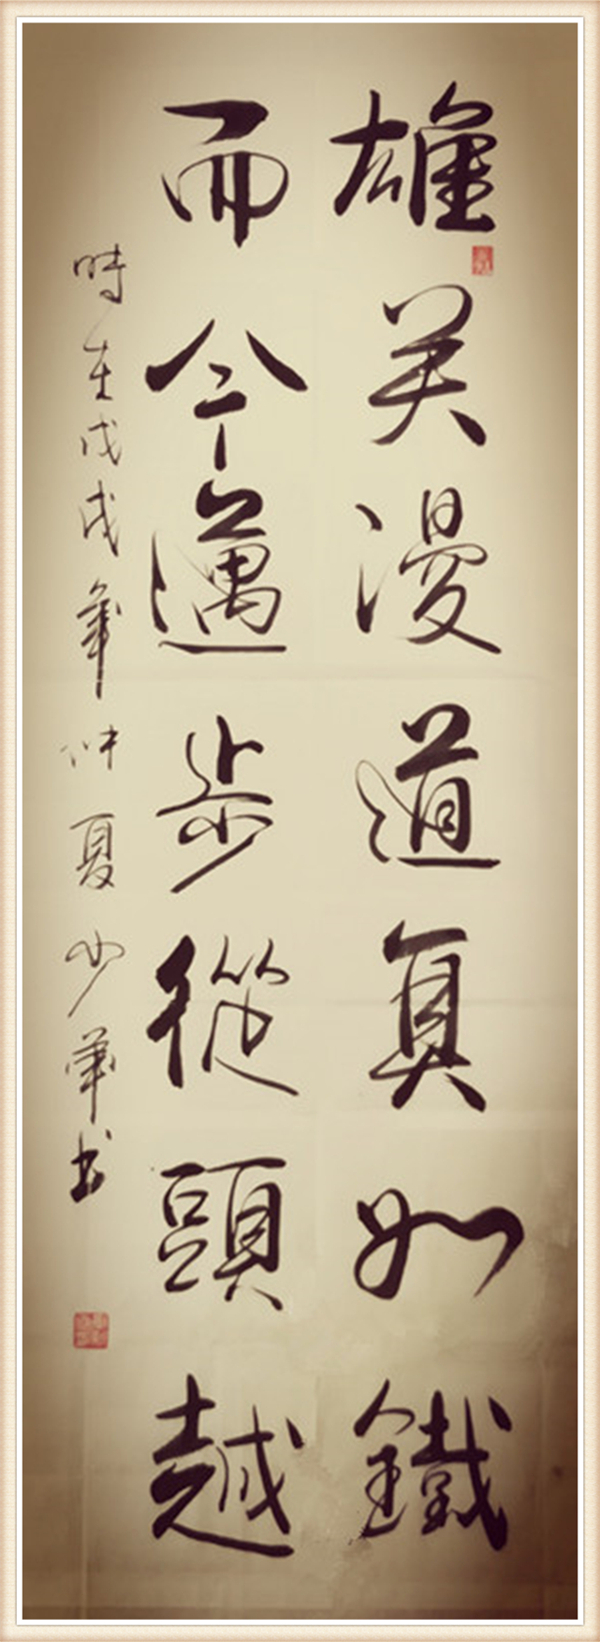 雄关漫道真如鐵
而今邁步從頭越
時在戊戌年仲夏少華书